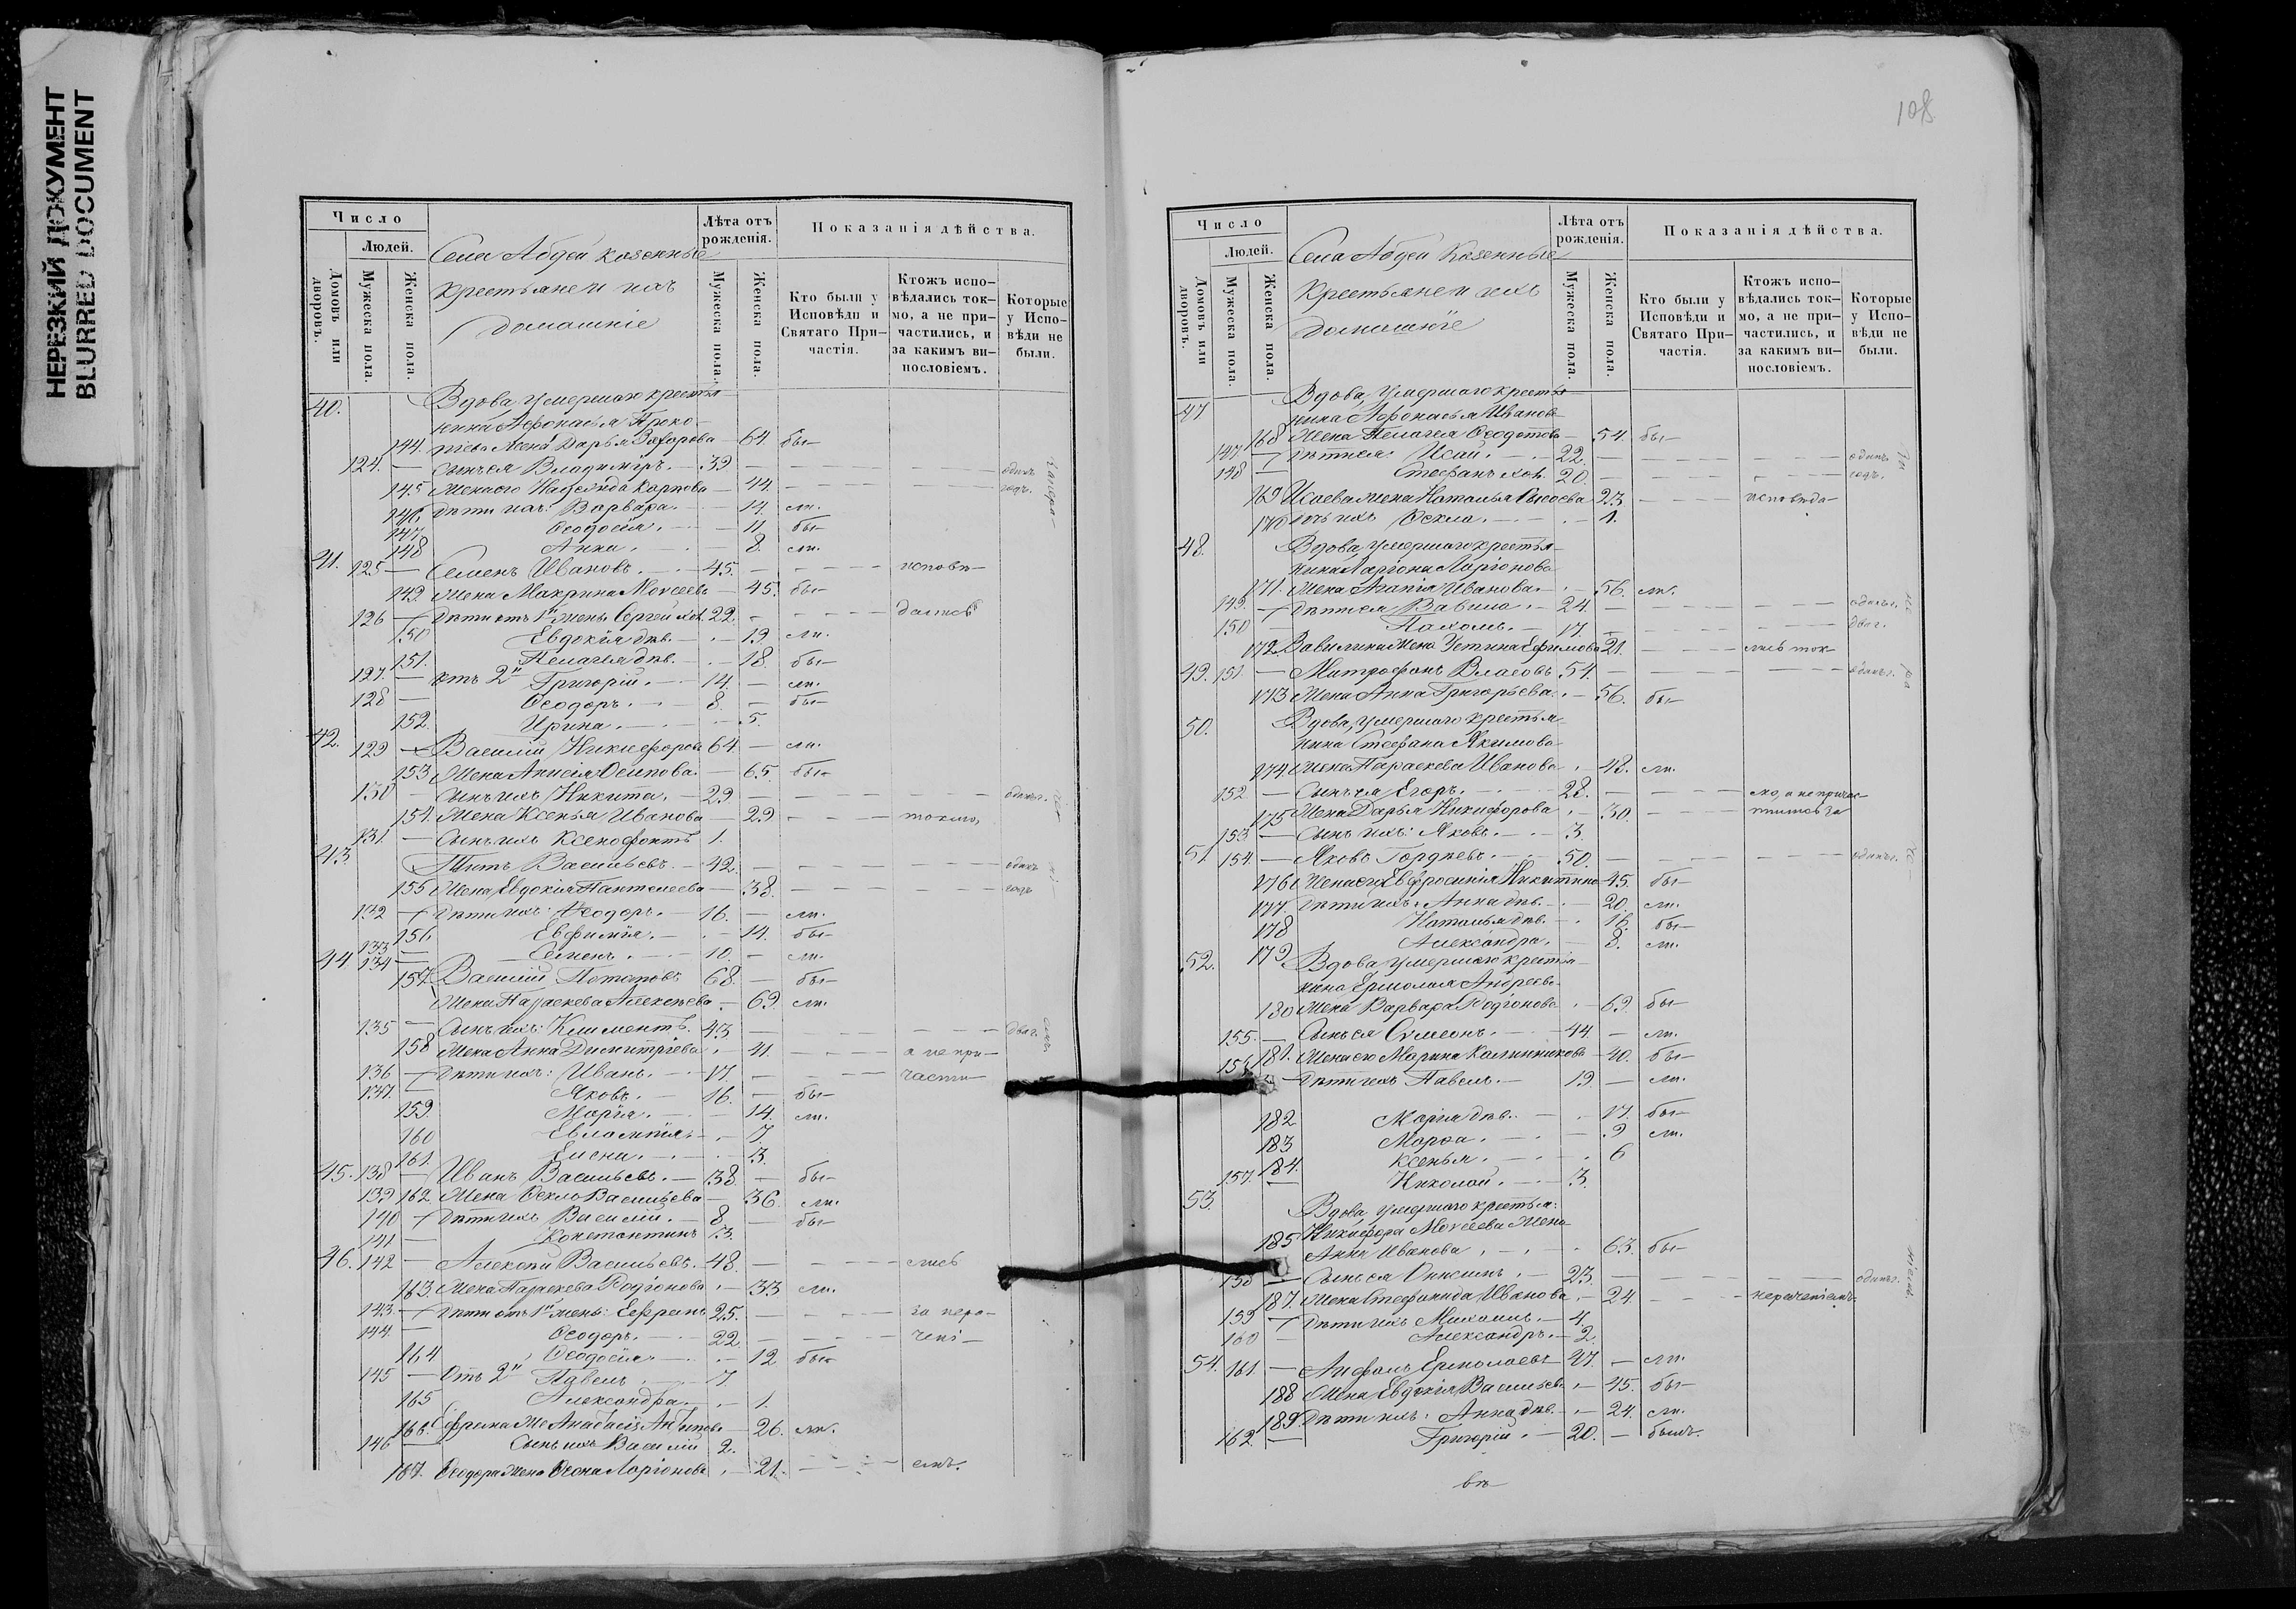 НЕРЕЗКИЙ ДОКУМЕНТ
BLURRED DOCUMENT
Число
Людей.
Домовъ или дворовъ.
Мужеска пола.
Женска пола.
Села Абдеи казенные
крестьяне и ихъ
домашніе
Лѣта отъ рожденія.
Мужеска пола.
Женска пола.
Показанія дѣйства.
Кто были у Исповѣди и Святаго Причастія.
Ктожъ исповѣдались токмо, а не причастились, и за какимъ винословіемъ.
Которые у Исповѣди не были.
40. Вдова, умершаго крестья-
нина Афонасья Проко-
144. пьева жена Дарья Захарова — 64. бы-
124. — Сынъ ея Владиміръ. — 39 — одинъ
145 Жена его Карпова — 44. — годъ.
146 Дѣти ихъ: Варвара. — 14. ли.
147 Ѳеодосія. — 11 бы-
148 Анна. — 8. ли.
41. 125 — Семенъ Ивановъ. — 45. — исповѣ-
149. Жена Макрина Моисеева — 45. бы-
126 — Дѣти отъ 1й жены Сергей хол. 22. — дались
150 Евдокія дѣв. — 19 ли.
151. Пелагея дѣв. — 18. бы-
127. — отъ 2й Григорій. — 14. — ли.
128 — Ѳеодоръ. — 8. — бы-
152. Ирина. — 5.
42. 129 — Василій Никифоровъ 64 — ли.
153 Жена Анисія Осипова. — 65. бы-
130 — Сынъ ихъ Никита. — 29 — одинъ.
154. Жена Ксенья Иванова — 29 — токмо,
131. — Сынъ ихъ Ксенофонтъ 1.
43 Титъ Васильевъ. — 42. — одинъ
155 Жена Евдокія Пантелеева — 38. — годъ
132 — Дѣти ихъ: Ѳеодоръ. — 16. — ли.
156 Евфимія. — 14. бы-
133 — Семенъ. — 10. — ли.
44. 134 — Василій Потаповъ 68. — бы-
157. Жена Параскева Алексѣева — 69. ли.
135 — Сынъ ихъ: Климентъ. 43 — два г.
158 Жена Анна Димитріева — 41. — а не при-
136 — Дѣти ихъ: Иванъ. — 17. — части-
137. — Яковъ. — 16. — бы-
159. Марія. — 14. ли.
160 Евлампія — 7.
161. Елена. — 3.
45. 138 — Иванъ Васильевъ. — 38. — бы-
139 162 Жена Ѳекла Васильева — 36. ли.
140 — Дѣти ихъ Василій. — 8. — бы-
141 — Константинъ 3.
46. 142 — Алексѣй Васильевъ. 48. — лись
163. Жена Параскева Родіонова — 33 ли.
143 — Дѣти отъ 1й жены: Ефремъ 25. — за нера-
144. — Ѳеодоръ. — 22. — чені-
164 Ѳеодосія — 12 бы-
145 — Отъ 2й Павелъ — 7.
165 Александра. — 1.
166. Ефрема же Антипова — 26. ли.
146 — Сынъ ихъ Василій 2.
167. Ѳеодора жена Ларіонова — 21. — емъ.
108
Число
Людей.
Домовъ или дворовъ.
Мужеска пола.
Женска пола.
Села Абдеи Казенные
Крестьяне и ихъ
домашніе
Лѣта отъ рожденія.
Мужеска пола.
Женска пола.
Показанія дѣйства.
Кто были у Исповѣди и Святаго Причастія.
Ктожъ исповѣдались токмо, а не причастились, и за какимъ винословіемъ.
Которые у Исповѣди не были.
47 Вдова, умершаго крестья-
нина Афонасья Иванова
168 Жена Пелагея Ѳеодотова — 54. бы-
147 — Дѣти ея: Исай. — 22. — одинъ.
148 — Стефанъ хол. 20. — годъ.
169 Исаева жена Наталья 23. — исповѣда-
170 дочь ихъ Ѳекла. — 1.
48. Вдова, умершаго крестья-
нина Ларіона Ларіонова
171. Жена Агапія Иванова. — 56. ли.
149. — Дѣти ея Вавила. — 24. — одинъ.
150 — Пахомъ. — 17. — два г.
172 Вавилина жена Устина Ефимова 21. — лись ток-
49. 151. — Митрофанъ Власовъ 54. — одинъ.
173 Жена Анна Григорьева. — 56. бы-
50. Вдова, умершаго крестья-
нина Стефана Якимова
174 Жена Параскева Иванова — 48. ли.
152 — Сынъ ея Егоръ. — 28. — мо, а не причас-
175 Жена Дарья Никифорова — 30. — тились за
153 — Сынъ ихъ: Яковъ. — 3.
51. 154. — Яковъ Гордѣевъ. — 50. — одинъ.
176 Жена его Евфросинія Никитина — 45. бы-
177. Дѣти ихъ: Анна дѣв. — 20. ли.
178 Наталья дѣв. — 16. бы-
179 Александра. — 8. ли.
52. Вдова умершаго крестья-
нина Ермолая Андреева
180 Жена Варвара Родіонова — 69. бы-
155. — Сынъ ея Сѵмеонъ. — 44. — ли.
181. Жена его Марина Калинникова — 40. бы-
156 — Дѣти ихъ Павелъ. — 19 — ли.
182 Марія дѣв. — 17. бы-
183 Марѳа. — 9 ли.
184. Ксенья. — 6
157. — Николай. — 3.
53. Вдова, умершаго крестья:
Никифора Моисеева жена
185 Анна Иванова — 63. бы-
158 — Сынъ ея Онисимъ. — 23. — одинъ.
187. Жена Стефанида Иванова. — 24. — нераченіемъ.
159 — Дѣти ихъ Михаилъ. — 4.
160 Александръ. — 2.
54. 161. — Анфалъ Ермолаевъ 47. — ли.
188 Жена Евдокія Васильева — 45. бы-
189. Дѣти ихъ: Анна дѣв. — 24. ли.
162. — Григорій. — 20. — былъ.